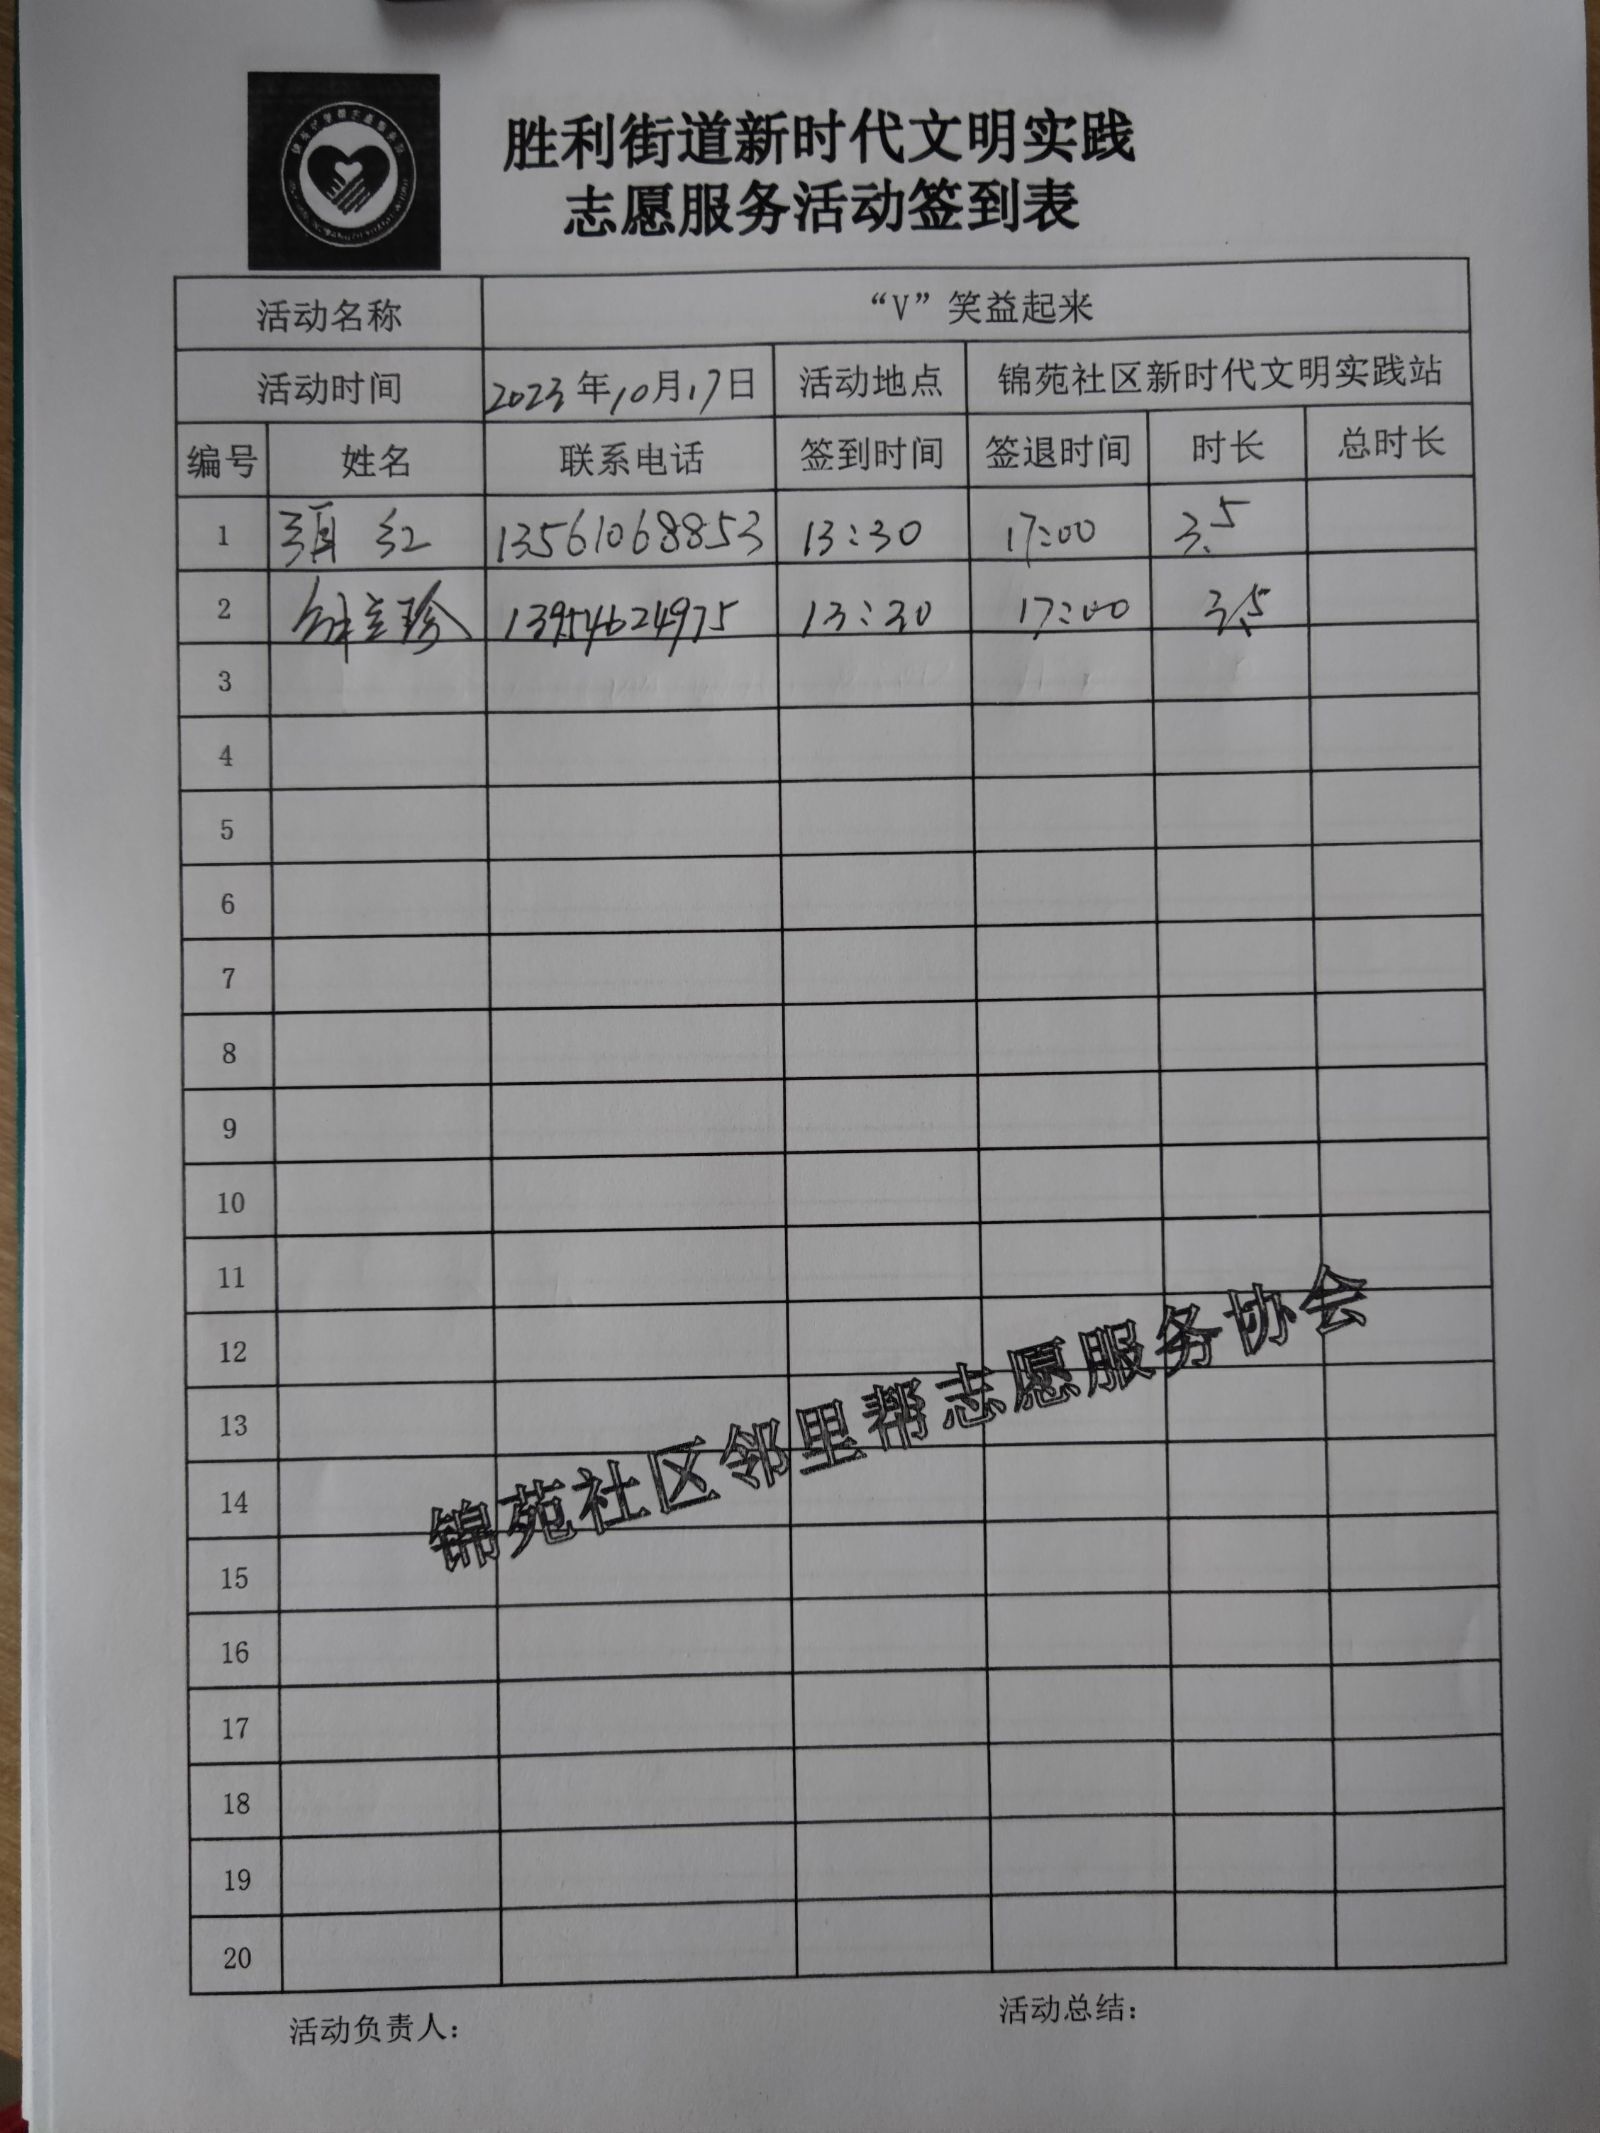 胜利街道新时代文明实践
志愿服务活动签到表
活动名称 “V”笑益起来
活动时间 2023年10月17日 活动地点 锦苑社区新时代文明实践站
编号 姓名 联系电话 签到时间 签退时间 时长 总时长
1 红 13561068853 13:30 17:00 3.5
2 13954624975 13:30 17:00 3.5
3
4
5
6
7
8
9
10
11
12
13
14
15
16
17
18
19
20
锦苑社区邻里帮志愿服务协会
活动负责人： 活动总结：